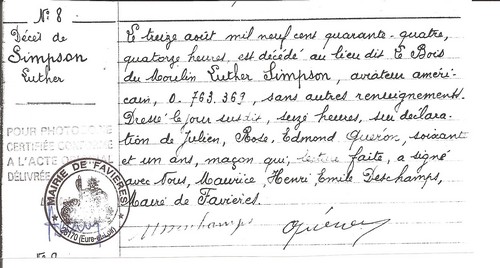 N: 8
Décès de
Simpson
Luther
Le treize août mil neuf cent quarante-quatre,
quatorze heures, est décédé au lieu dit Le Bois
du Moulin Luther Simpson, aviateur améri-
cain, O. 763.369, sans autres renseignements.
Dressé le jour susdit, seize heures, sur déclara-
tion de Julien, Rose, Edmond Quéron, soixante
et un ans, maçon qui, lecture faite, a signé
avec Nous, Maurice, Henri Emile Deschamps,
Maire de Favières.
POUR PHOTOCOPIE
CERTIFIÉE CONFORME
A L'ACTE
DÉLIVRÉE
MAIRIE DE FAVIERES
28170 (Eure-et-Loir)
Deschamps
Quéron